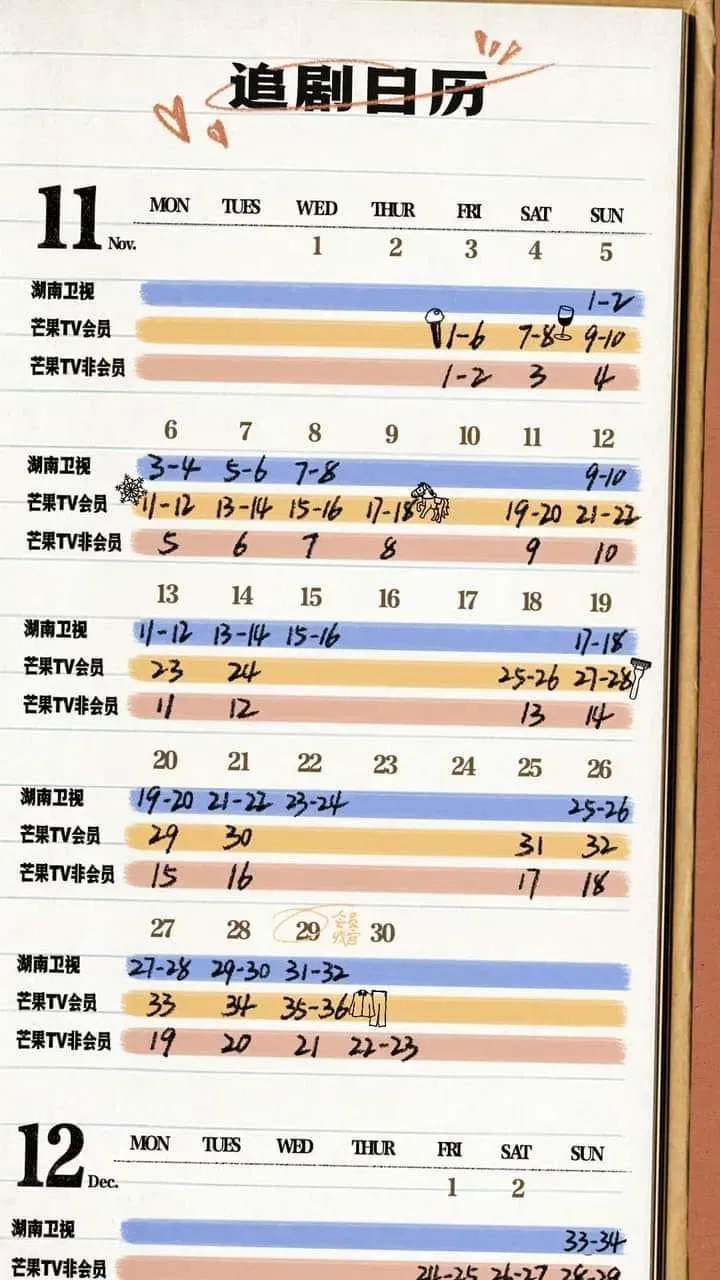 追剧日历
11 Nov. MON TUES WED THUR FRI SAT SUN
1 2 3 4 5
湖南卫视 1-2
芒果TV会员 1-6 7-8 9-10
芒果TV非会员 1-2 3 4
6 7 8 9 10 11 12
湖南卫视 3-4 5-6 7-8 9-10
芒果TV会员 11-12 13-14 15-16 17-18 19-20 21-22
芒果TV非会员 5 6 7 8 9 10
13 14 15 16 17 18 19
湖南卫视 11-12 13-14 15-16 17-18
芒果TV会员 23 24 25-26 27-28
芒果TV非会员 11 12 13 14
20 21 22 23 24 25 26
湖南卫视 19-20 21-22 23-24 25-26
芒果TV会员 29 30 31 32
芒果TV非会员 15 16 17 18
27 28 29 会员收官 30
湖南卫视 27-28 29-30 31-32
芒果TV会员 33 34 35-36
芒果TV非会员 19 20 21 22-23
12 Dec. MON TUES WED THUR FRI SAT SUN
1 2
湖南卫视 33-34
芒果TV非会员 24-25 26-27 28-29